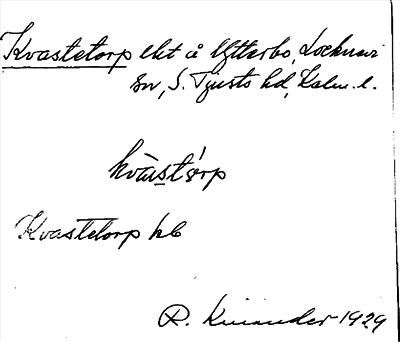 Kvastetorp lht å Ytterbo, Locknevi
sn, S. Tjusts hd, Kalm. l.
kvàstórp
Kvastetorp hb
R. Kinander 1929